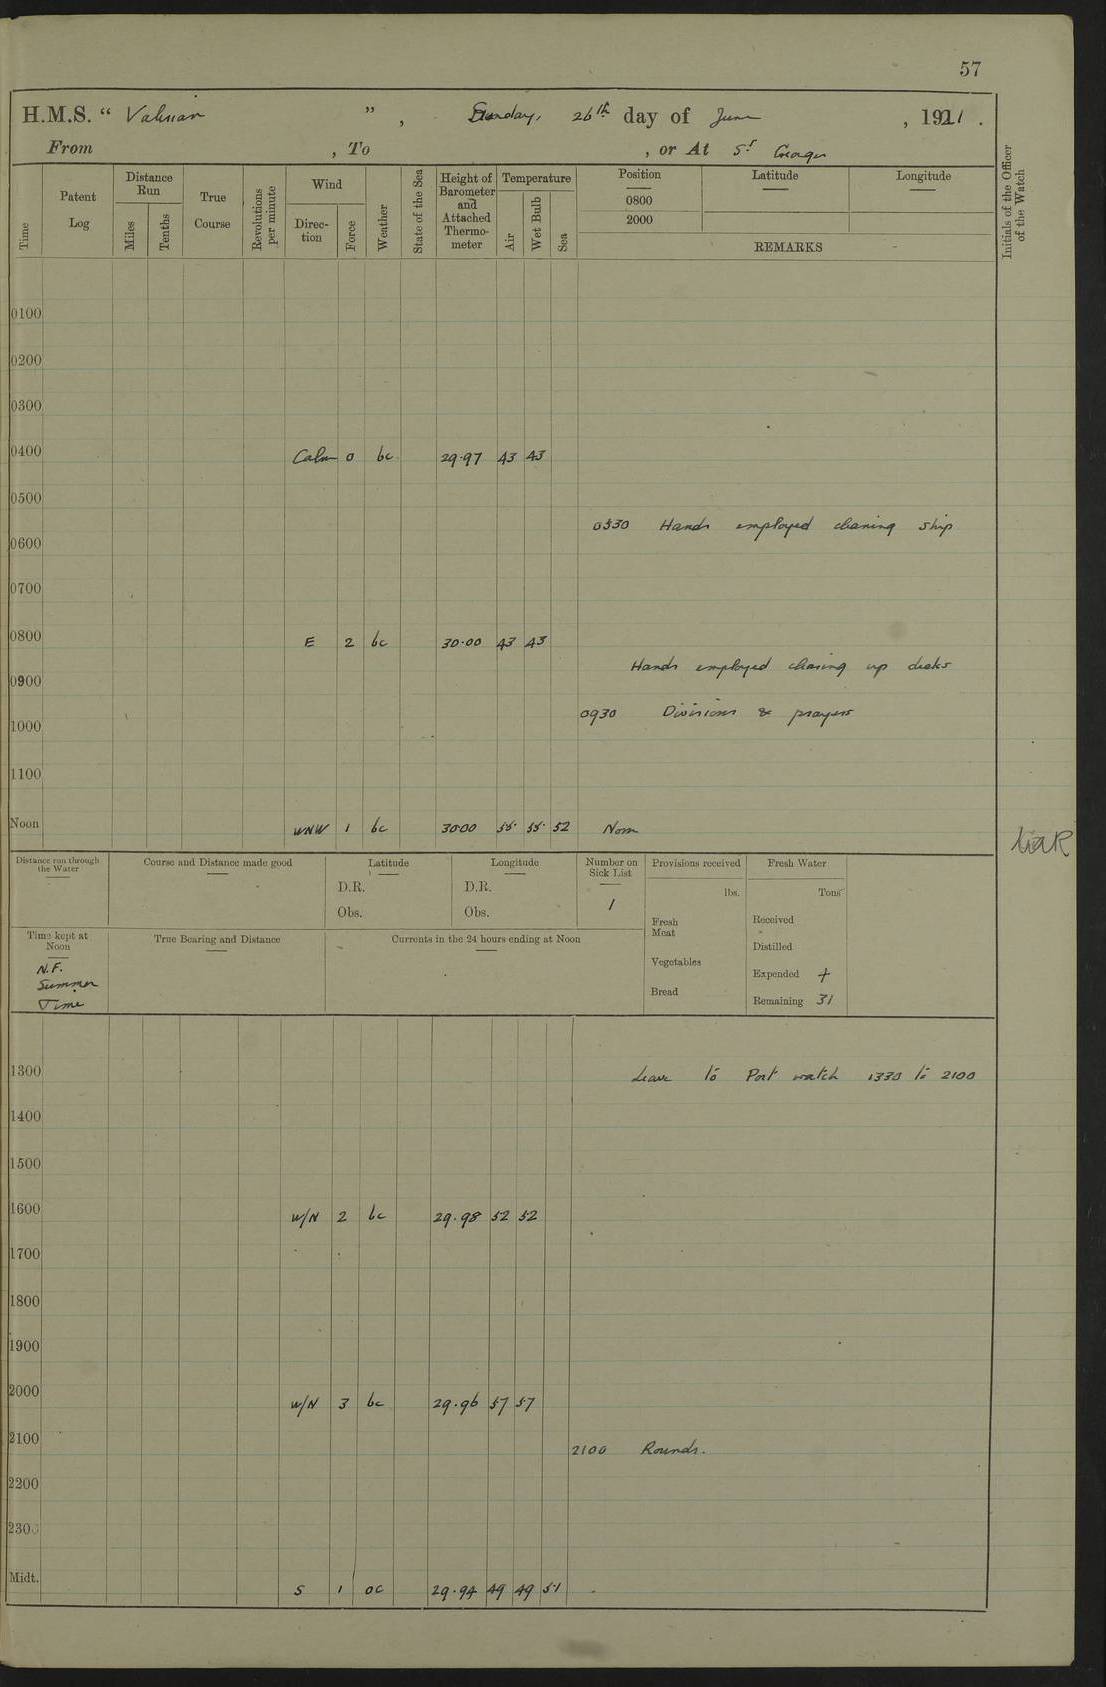 57
H.M.S. " Valerian " , Sunday, 26th day of June , 1921 .
From , To , or At St Georges
Time
Patent Log
Distance Run
Miles
Tenths
True Course
Revolutions per minute
Wind
Direction
Force
Weather
State of the Sea
Height of Barometer and Attached Thermometer
Temperature
Air
Wet Bulb
Sea
Position
0800
2000
Latitude
Longitude
REMARKS
Initials of the Officer of the Watch
0100
0200
0300
0400 Calm 0 bc 29.97 43 43
0500
0530 Hands employed cleaning ship
0600
0700
0800 E 2 bc 30.00 43 43
Hands employed cleaning up decks
0900
0930 Divisions & prayers
1000
1100
Noon WNW 1 bc 30.00 55. 55. 52 Noon
Distance run through the Water
Course and Distance made good
Latitude
D.R.
Obs.
Longitude
D.R.
Obs.
Number on Sick List
1
Provisions received
lbs.
Fresh Meat
Vegetables
Bread
Fresh Water
Tons
Received
Distilled
Expended 4
Remaining 31
Time kept at Noon
N.F.
Summer
Time
True Bearing and Distance
Currents in the 24 hours ending at Noon
1300 Leave to Port watch 1330 to 2100
1400
1500
1600 W/N 2 bc 29.98 52 52
1700
1800
1900
2000 W/N 3 bc 29.96 57 57
2100 2100 Rounds.
2200
2300
Midt. S 1 oc 29.94 49 49 51